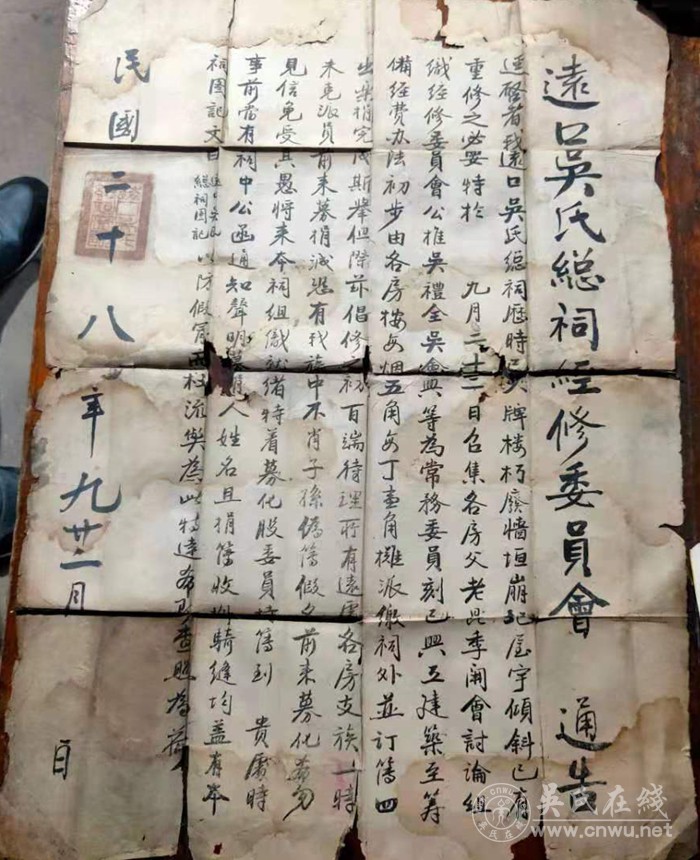 遠口吳氏總祠經修委員會 通告
逕啓者我遠口吳氏總祠歷時已久牌楼朽廢墻垣崩圯屋宇傾斜已有
重修之必要特於 九月二十二日召集各房父老昆季開會討論組
織經修委員會公推吳禮全吳會興等為常務委員刻已興工建築至籌
備經費办法初步由各房按每烟五角每丁壹角攤派缴祠外並订簿四
出樂捐完成斯舉但際茲倡修之初百端待理所有遠處各房支族一時
未克派員前来募捐誠恐有我族中不肖子孫偽簿假名前来募化希勿
見信免受其愚將来本祠组織就绪特着募化股委員持簿到 貴處時
事前當有祠中公函通知聲明 人姓名且捐簿收 騎缝均盖有本
祠圖記文曰遠口吳氏總祠圖記以防假冒而杜流弊為此特達希即查照為荷
民國二十八年九廿二月 日
吴氏在线
www.cnwu.net
CNWU